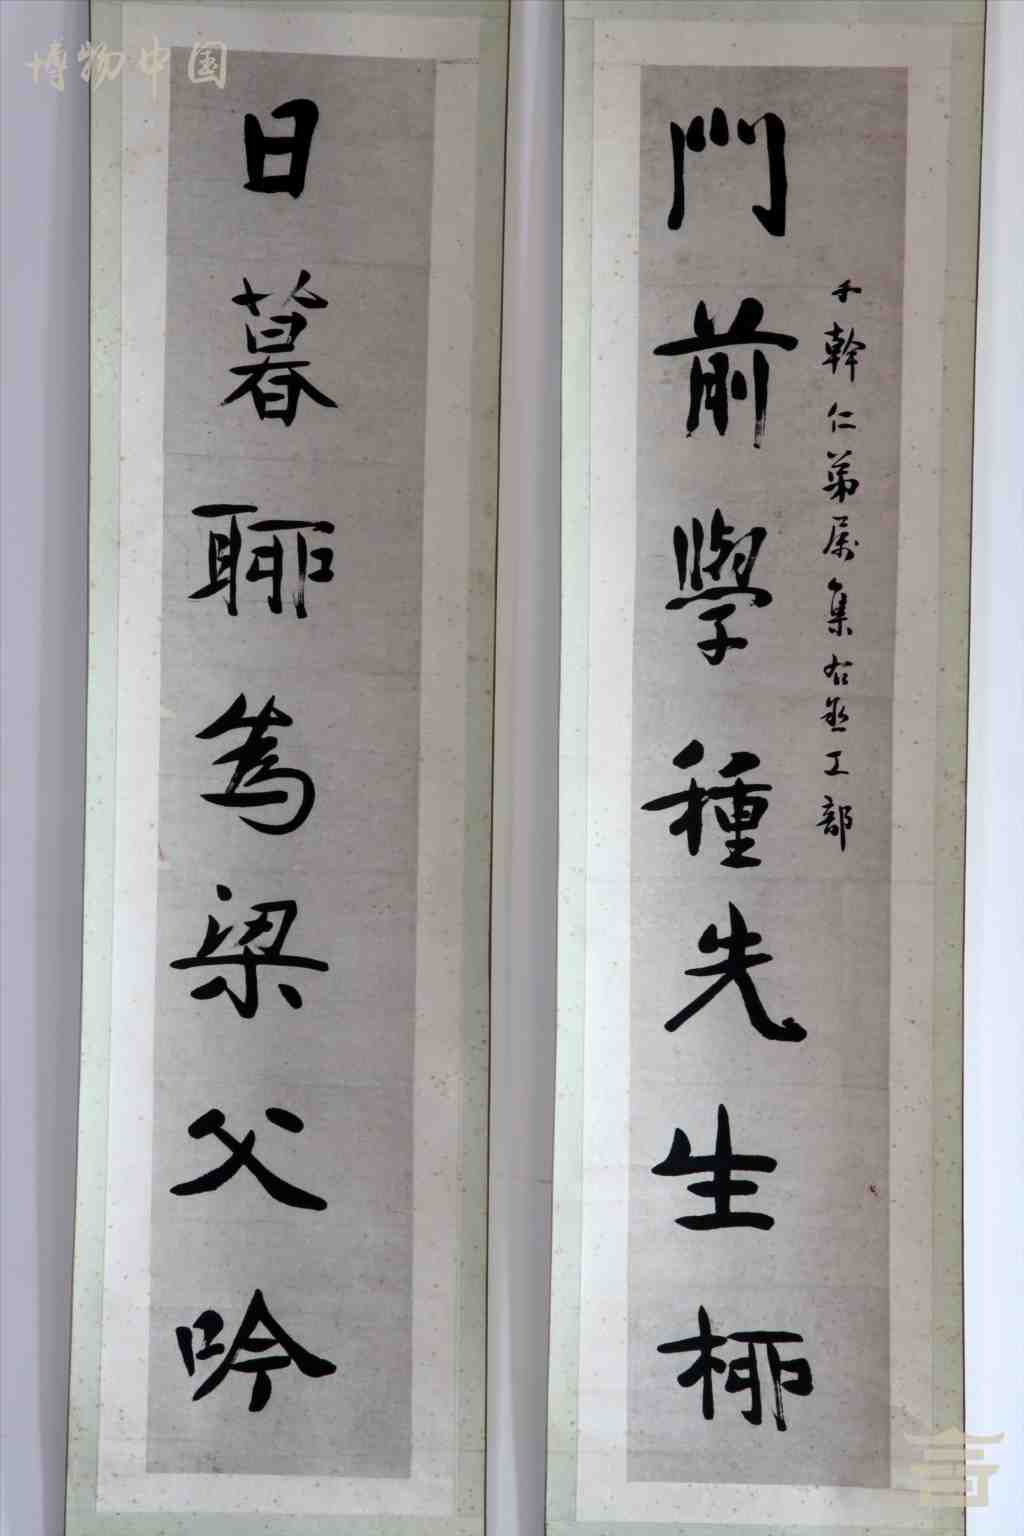 博物中国
千幹仁弟属集右丞工部
門前學種先生柳
日暮聊為梁父吟